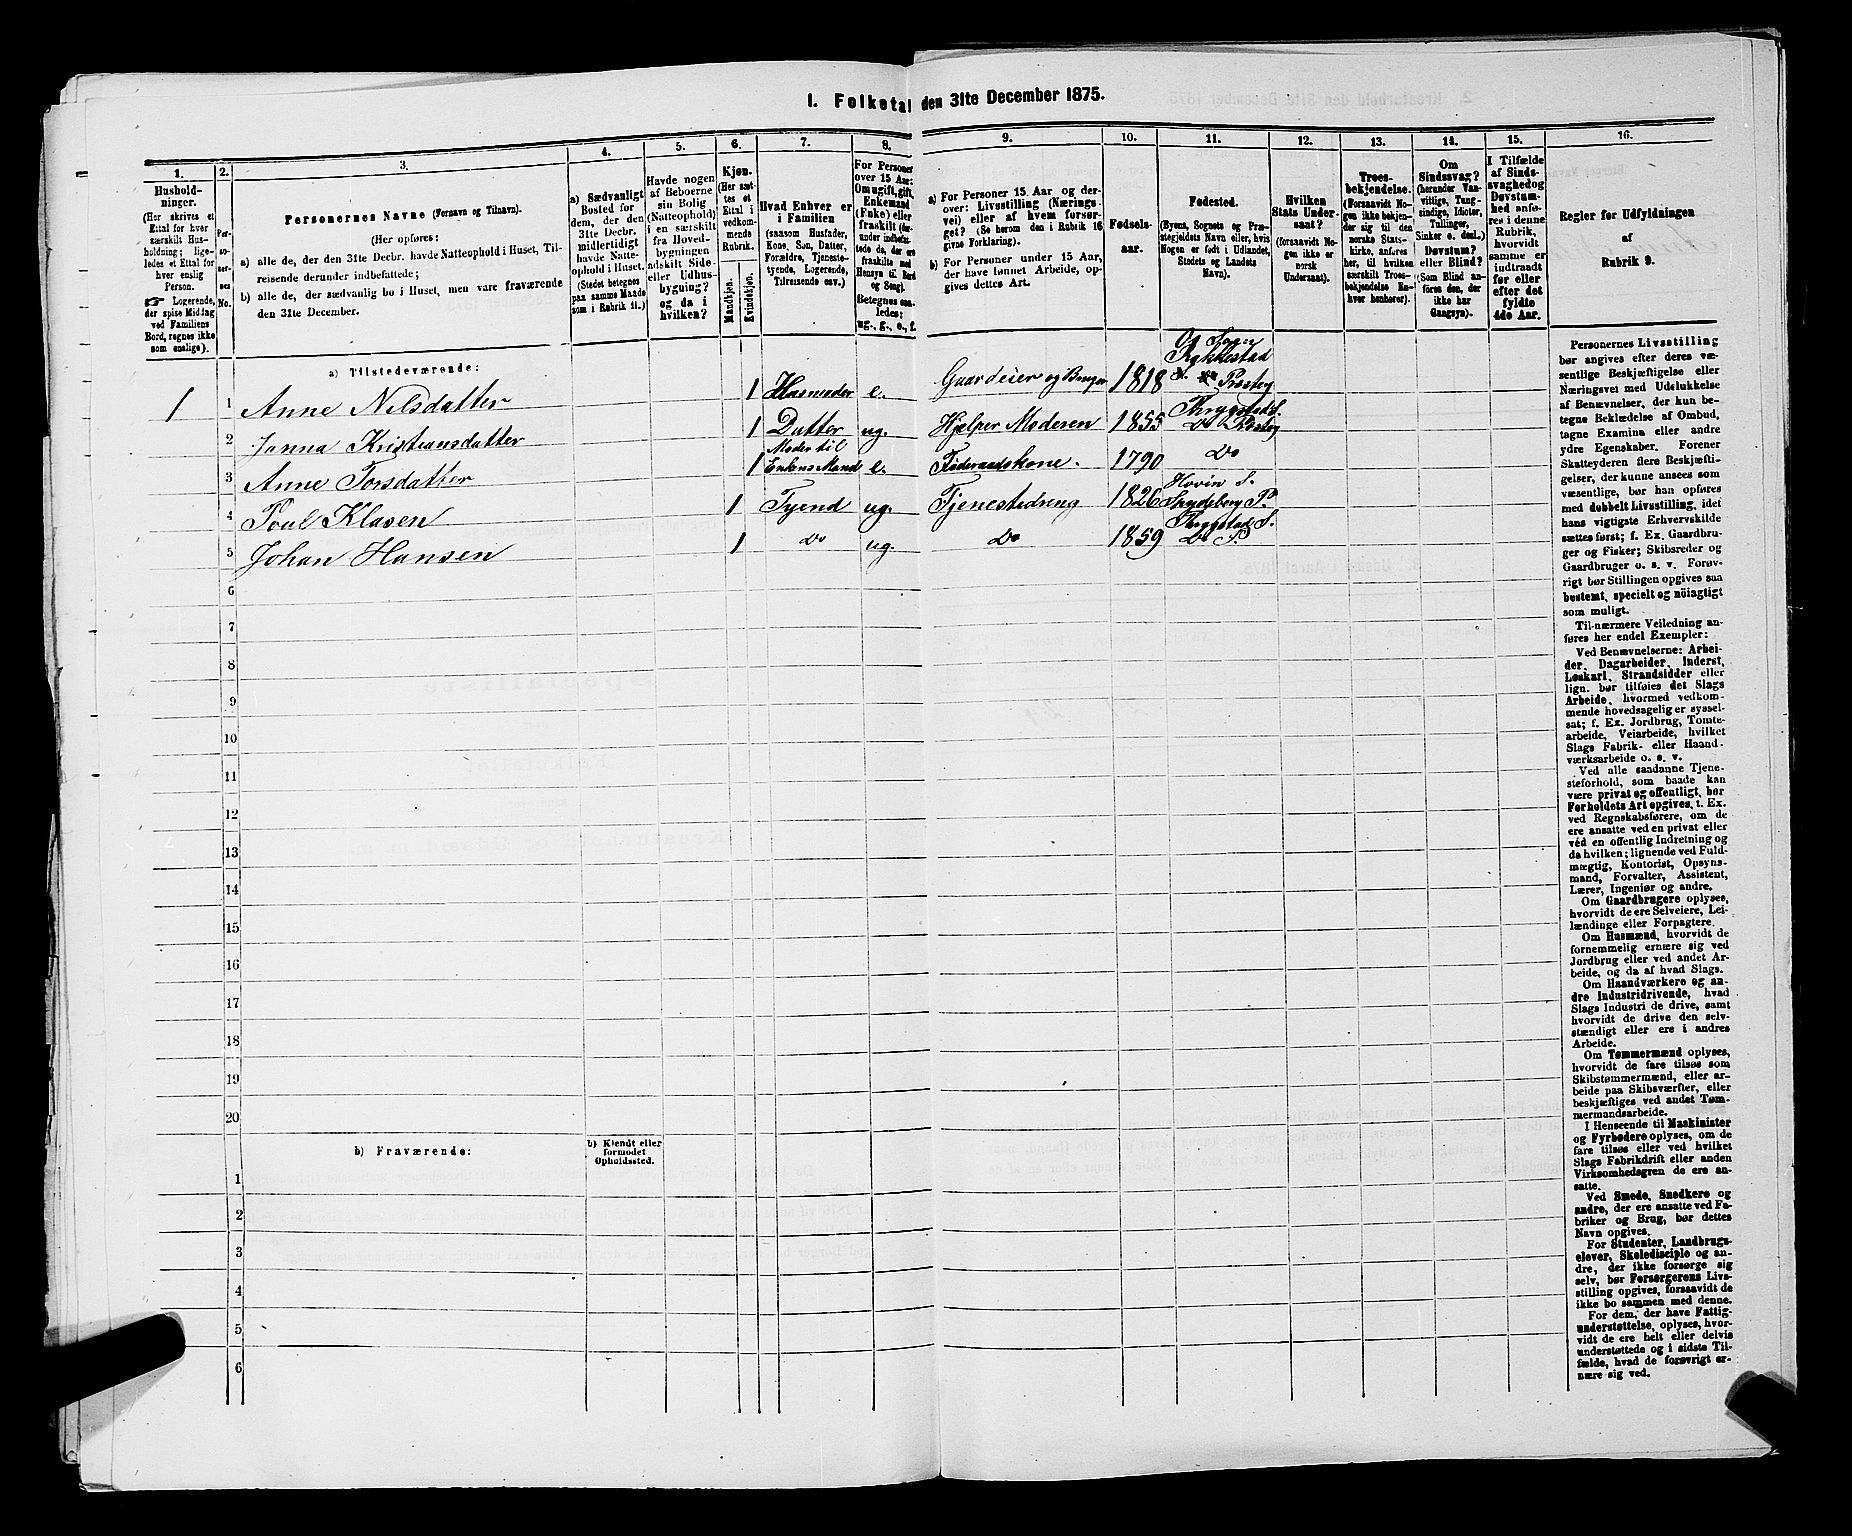 1. Folketal den 31te December 1875.
1.
2.
3.
4.
5.
6.
7.
8.
9.
10.
11.
12.
13.
14.
15.
16.
Hushold-
ninger.
(Her skrives et
Ettal for hver
særskilt Hus-
holdning; lige-
ledes et Ettal for
hver enslig
Person.
☛ Logerende,
der spise Middag
ved Familiens
Bord, regnes ikke
som enslige).
Per-
so-
ner-
nes
No.
Personernes Navne (Fornavn og Tilnavn).
(Her opføres:
a) alle de, der den 31te Decbr. havde Natteophold i Huset, Til-
reisende derunder indbefattede;
b) alle de, der sædvanlig bo i Huset, men vare fraværende
den 31te December.
a) Sædvanligt
Bosted for
dem, der den
31te Decbr.
midlertidigt
havde Natte-
ophold i Huset.
(Stedet betegnes
paa samme Maade
som i Rubrik 11.)
Havde nogen
af Beboerne
sin Bolig
(Natteophold)
i en særskilt
fra Hoved-
bygningen
adskilt Side-
eller Udhus-
bygning?
og da i
hvilken?
Kjøn.
(Her sæt-
tes et
Ettal i
vedkom-
mende
Rubrik.
Mandkjøn.
Kvindekjøn.
Hvad Enhver er
i Familien
(saasom Husfader,
Kone, Søn, Datter,
Forældre, Tjeneste-
tyende, Logerende,
Tilreisende osv.)
For Personer
over 15 Aar:
Om ugift, gift,
Enkemand
(Enke) eller
fraskilt (der-
under indbefat-
tede de, der ere
fraskilte med
Hensyn til Bord
og Seng).
Betegnes saa-
ledes:
ug., g., e., f.
a) For Personer 15 Aar og der-
over: Livsstilling (Nærings-
vei) eller af hvem forsør-
get? (Se herom den i Rubrik 16
givne Forklaring).
b) For Personer under 15 Aar,
der have lønnet Arbeide, op-
gives dettes Art.
Fødsels-
aar.
Fødested.
(Byens, Sognets og Præ-
stegjeldets Navn eller, hvis
Nogen er født i Udlandet,
Stedets og Landets
Navn).
Hvilken
Stats Under-
saat?
(forsaavidt No-
gen ikke er
norsk
Undersaat).
Troes-
bekjendelse.
(Forsaavidt No-
gen ikke bekjen-
der sig til den
norske Stats-
kirke, anføres
her, til hvilken
særskilt Troes-
bekjendelse En-
hver henhører).
Om
Sindssvag?
(herunder Van-
vittige, Tung-
sindige, Idioter,
Tullinger,
Sinker o. desl.)
Døvstum?
eller Blind?
(Som Blind an-
føres den, der
ikke har
Gangsyn).
I Tilfælde
af Sinds-
svaghed og
Døvstum-
hed anfø-
res i denne
Rubrik,
hvorvidt
samme er
indtraadt
før eller
efter det
fyldte
4de Aar.
Regler for Udfyldningen
af
Rubrik 9.
a) Tilstedeværende:
1 1 Anne Nilsdatter 1 Husmoder e. Gaardeier og Bruger 1818 Og Sogn Rakkestad S. Præsteg
2 Janna Kristiansdatter 1 Datter ug. Hjælper Moderen 1855 Trygstad S. Do Præsteg
3 Anne Torsdatter 1 Moder til Enkens Mand e. Føderaadskone. 1790 Do
4 Poul Klasen 1 Tyend ug. Tjenestedreng 1826 Hovin S. Spydeberg P.
5 Johan Hansen 1 Do ug. Do 1859 Trygstad S. Do P.
6
7
8
9
10
11
12
13
14
15
16
17
18
19
20
b) Fraværende:
b) Kjendt eller
formodet
Opholdssted.
1
2
3
4
5
6
Personernes Livsstilling
bør angives efter deres væ-
sentlige Beskjæftigelse eller
Næringsvei med Udelukkelse
af Benævnelser, der kun be-
tegne Beklædelse af Ombud,
tagne Examina eller andre
ydre Egenskaber. Forener
Skatteyderen flere Beskjæfti-
gelser, der kunne ansees som
væsentlige, bør han opføres
med dobbelt Livsstilling, idet
hans vigtigste Erhvervskilde
sættes først; f. Ex. Gaardbru-
ger og Fisker; Skibsreder og
Gaardbruger o. s. v. Forøv-
rigt bør Stillingen opgives saa
bestemt, specielt og nöiagtigt
som muligt.
Til nærmere Veiledning an-
føres her endel Exempler:
Ved Benævnelserne: Arbei-
der, Dagarbeider, Inderst,
Løskarl, Strandsidder eller
lign. bør tilføies det Slags
Arbeide, hvormed vedkom-
mende hovedsagelig er syssel-
sat; f. Ex. Jordbrug, Tomte-
arbeide, Veiarbeide, hvilket
Slags Fabrik- eller Haand-
værksarbeide o. s. v.
Ved alle saadanne Tjene-
steforhold, som baade kan
være privat og offentligt, bør
Forholdets Art opgives, t. Ex.
ved Regnskabsførere, om de
ere ansatte ved en privat eller
véd en offentlig Indretning og
da hvilken; lignende ved Fuld-
mægtig, Kontorist, Opsyns-
mand, Forvalter, Assistent,
Lærer, Ingeniør og andre.
Om Gaardbrugere oplyses,
hvorvidt de ere Selveiere, Lei-
lændinge eller Forpagtere.
Om Husmænd, hvorvidt de
fornemmelig ernære sig ved
Jordbrug eller ved andet Ar-
beide, og da af hvad Slags.
Om Haandværkere og an-
dre Industridrivende, hvad
Slags Industri de drive, samt
hvorvidt de drive den selv-
stændigt eller ere i andres
Arbeide.
Om Tømmermænd oplyses,
hvorvidt de fare tilsøs som
Skibstømmermænd, eller ar-
beide paa Skibsværfter, eller
beskjæftiges ved andet Tøm-
mermandsarbeide.
I Henseende til Maskinister
og Fyrbødere oplyses, om de
fare tilsøs eller ved hvilket
Slags Fabrikdrift eller anden
Virksomhedsgren de ere an-
satte.
Ved Smede, Snedkere og
andre, der ere ansatte ved Fa-
briker og Brug, bør dettes
Navn opgives.
For Studenter, Landbrugs-
elever, Skoledisciple og an-
dre, der ikke forsørge sig
selv, bør Forsørgerens Livs-
stilling opgives, forsaavidt de
ikke bo sammen med denne.
For dem, der have Fattig-
understøttelse, oplyses, hvor-
vidt de ere helt eller delvis
understøttede og i sidste Til-
fælde, hvad de forøvrigt er-
nære sig ved.